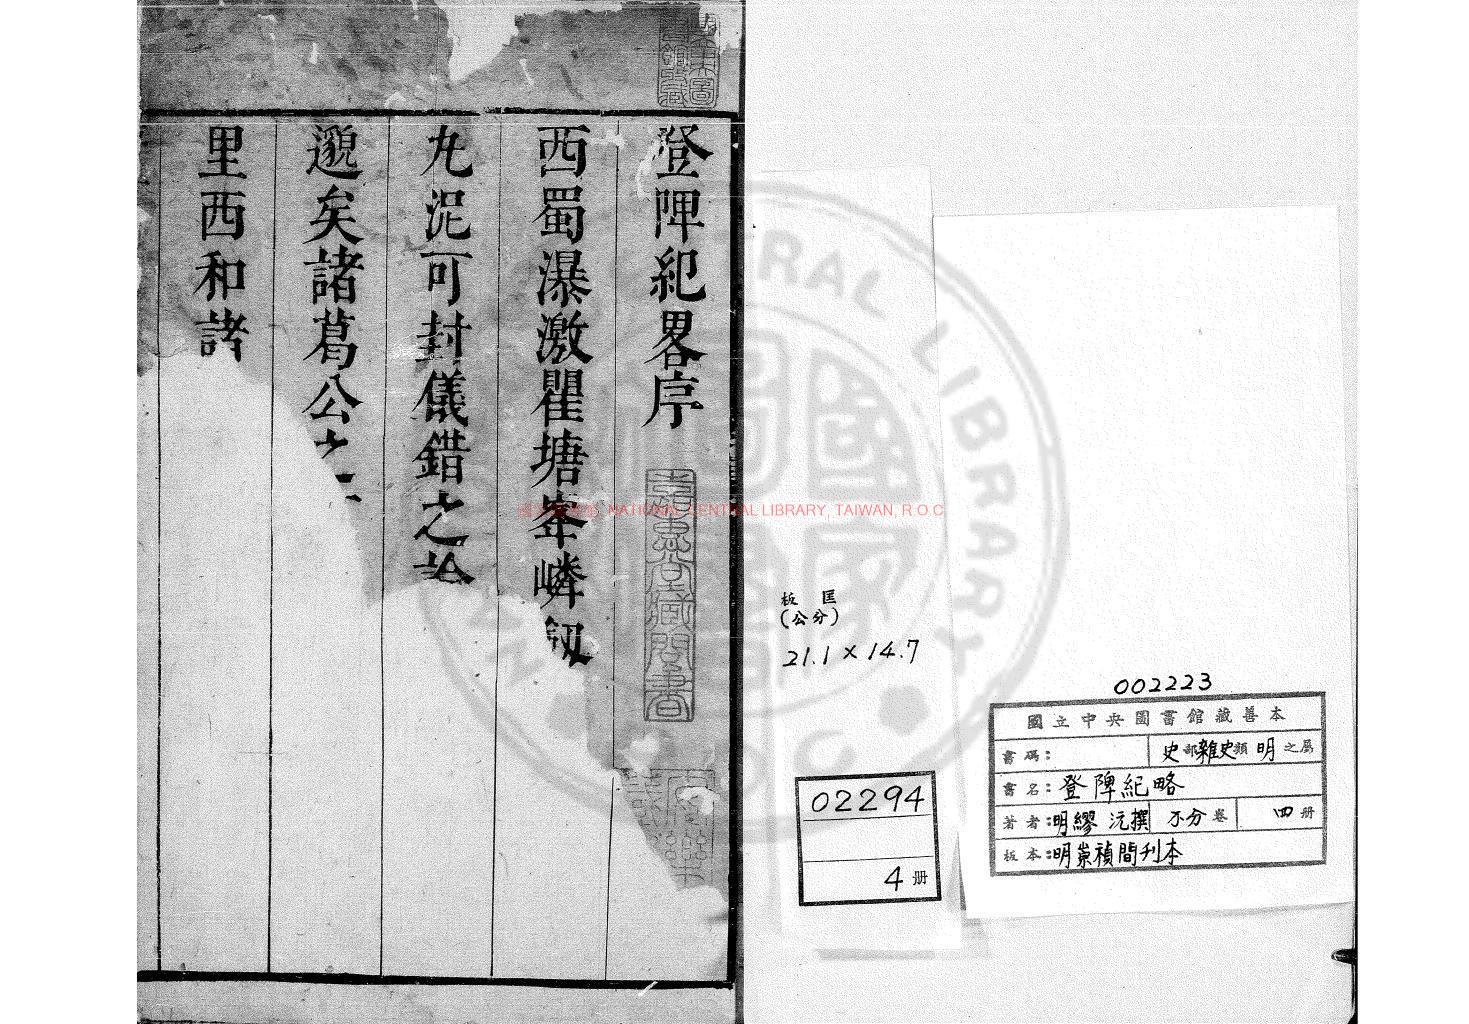 登陴紀畧序
西蜀瀑激瞿塘峯嶙
丸泥可封儀錯之
邈矣諸葛公之
里西和諸
嘉惠堂藏閱書
國家圖書館 NATIONAL CENTRAL LIBRARY, TAIWAN, R.O.C
板匡
(公分)
21.1 × 14.7
02294
4 册
002223
國立中央圖書館藏善本
書碼: 史部雜史類明之屬
書名:登陴紀略
著者:明繆沅撰 不分卷 四册
板本:明崇禎間刊本